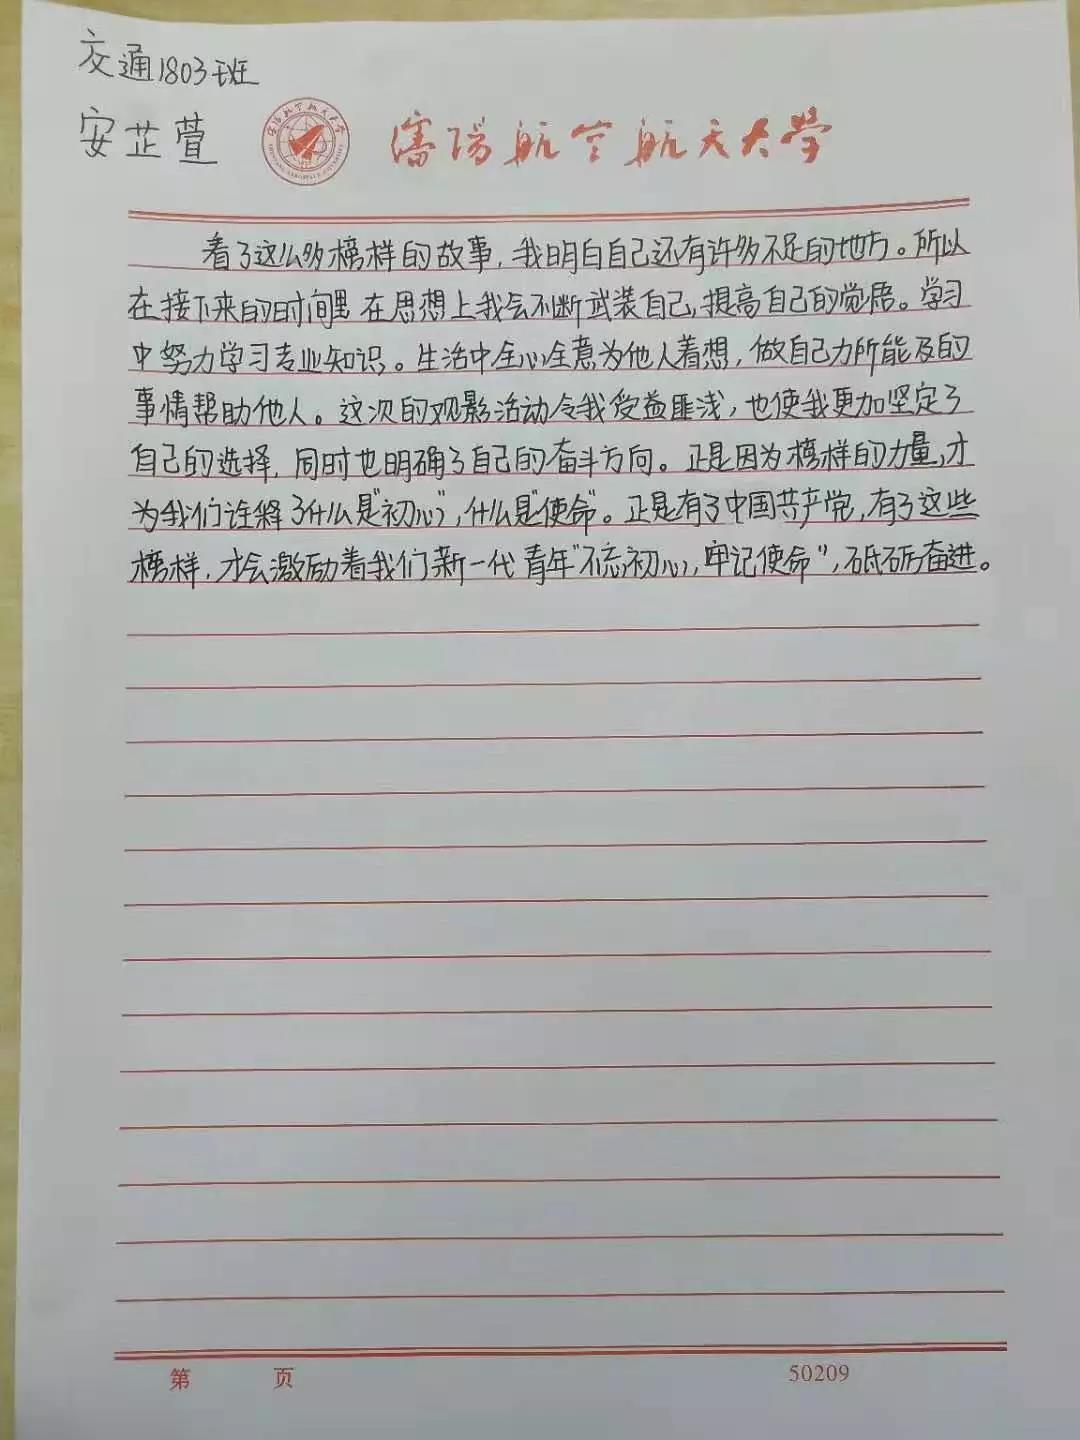 交通1803班
安芷萱
沈阳航空航天大学
看了这么多榜样的故事，我明白自己还有许多不足的地方。所以
在接下来的时间里在思想上我会不断武装自己，提高自己的觉悟。学习
中努力学习专业知识。生活中全心全意为他人着想，做自己力所能及的
事情帮助他人。这次的观影活动令我受益匪浅，也使我更加坚定了
自己的选择，同时也明确了自己的奋斗方向。正是因为榜样的力量，才
为我们诠释了什么是“初心”，什么是“使命”。正是有了中国共产党，有了这些
榜样，才会激励着我们新一代青年“不忘初心，牢记使命”，砥砺奋进。
第 页
50209